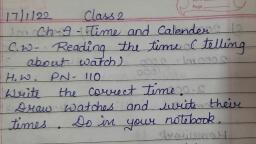 17/1/22 Class 2
Ch-9-Time and Calender
C.W- Reading the time (telling
about watch)
H.W. PN-110
Write the correct time.
Draw watches and write their
times. Do in your notebook.